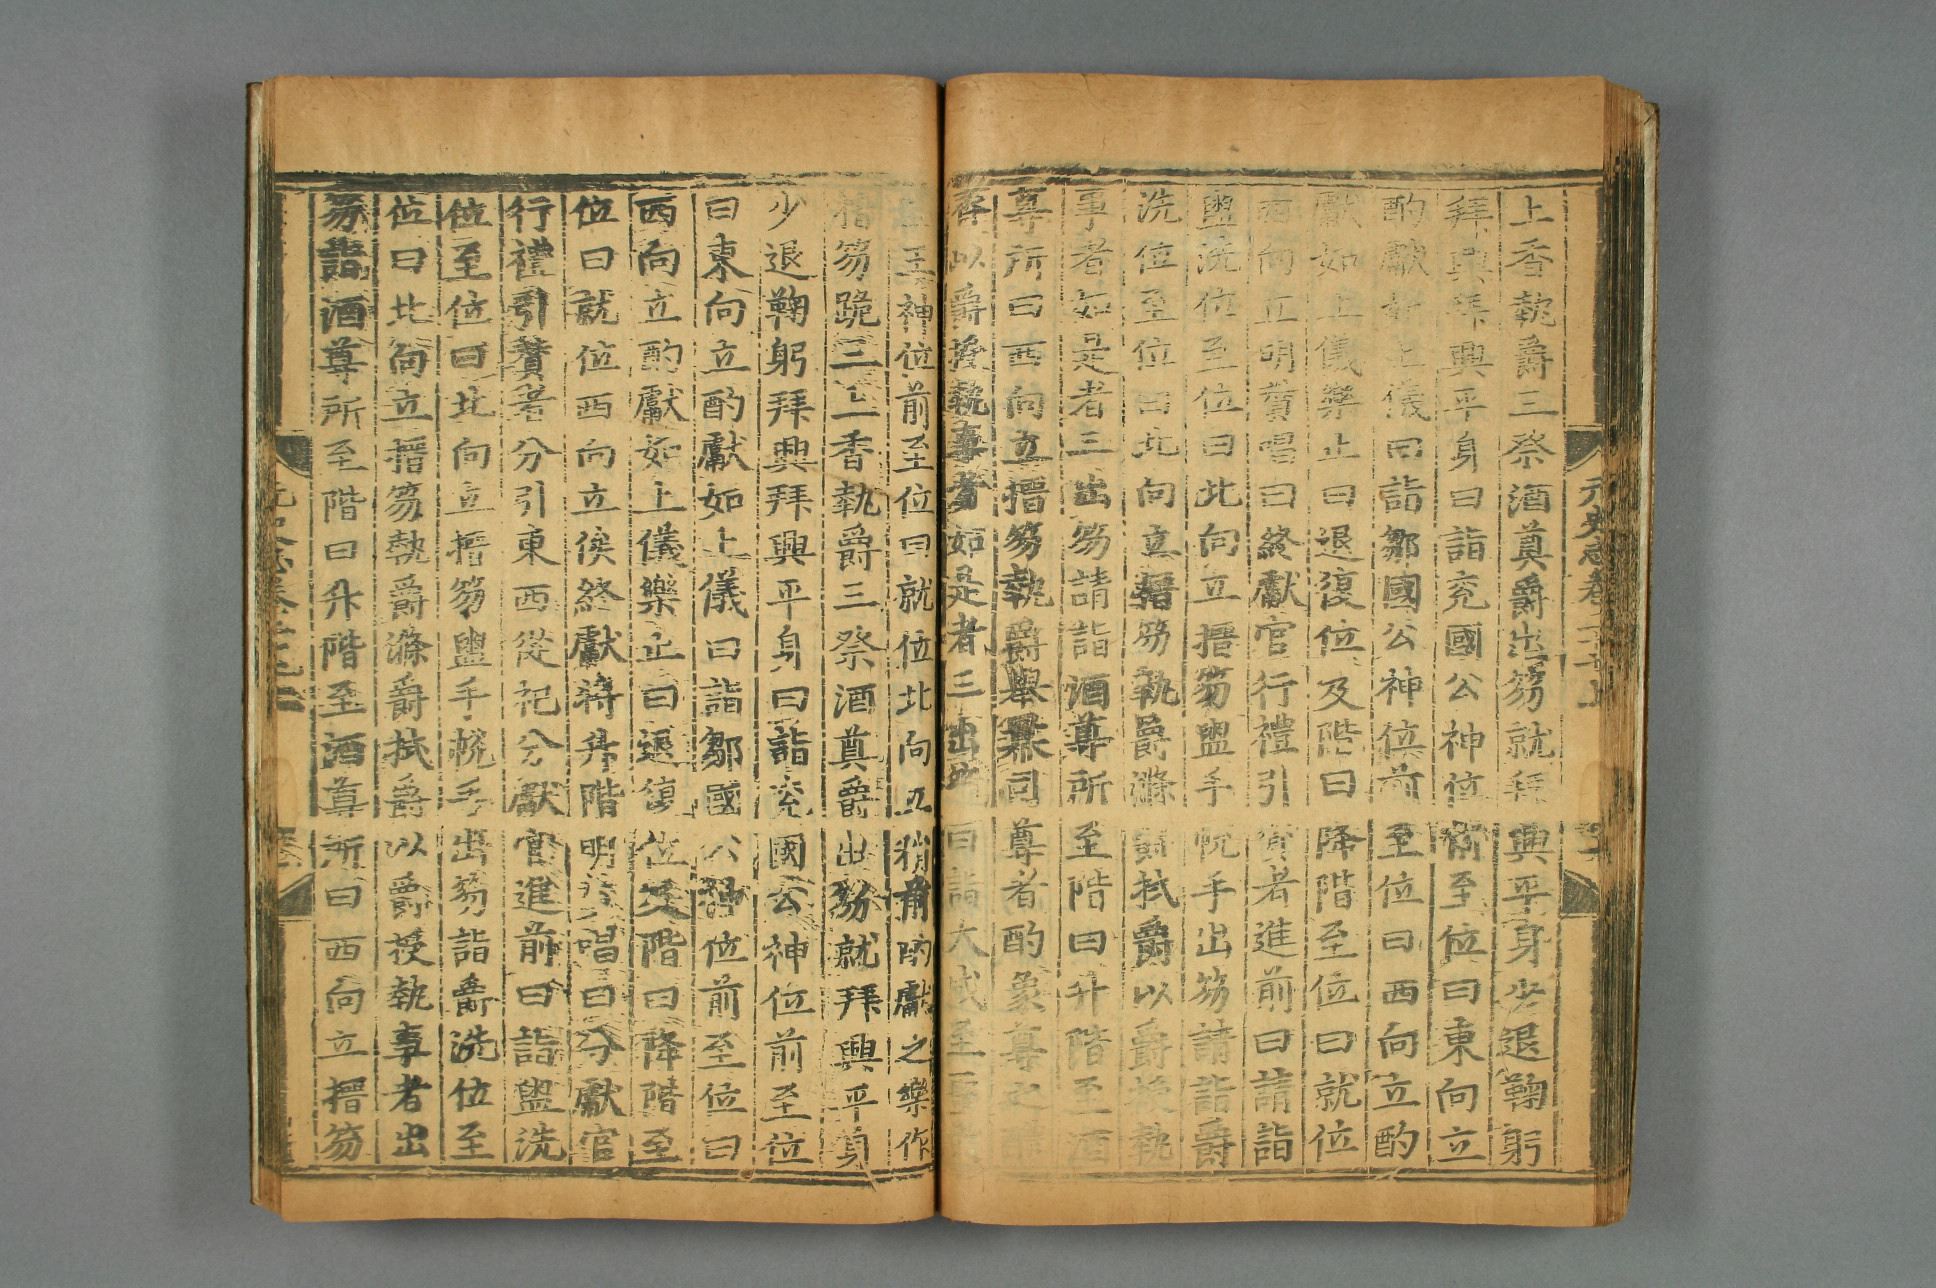 上香執爵三祭酒奠爵出笏就拜興平身少退鞠躬
拜興拜興平身曰詣兖國公神位前至位曰東向立
酌獻如上儀曰詣鄒國公神位前至位曰西向立酌
獻如上儀樂止曰退復位及階曰降階至位曰就位
西向立明贊唱曰終獻官行禮引贊者進前曰請詣
盥洗位至位曰北向立搢笏盥手帨手出笏請詣爵
洗位至位曰北向立搢笏執爵滌爵拭爵以爵授執
事者如是者三出笏請詣酒尊所至階曰升階至酒
尊所曰西向立搢笏執爵舉羃司尊者酌象尊之
齊以爵授執事者如是者三出笏曰詣大成至聖
王神位前至位曰就位北向立稍前酌獻之樂作
搢笏跪三上香執爵三祭酒奠爵出笏就拜興平身
少退鞠躬拜興拜興平身曰詣兖國公神位前至位
曰東向立酌獻如上儀曰詣鄒國公神位前至位曰
西向立酌獻如上儀樂止曰退復位及階曰降階至
位曰就位西向立俟終獻將升階明贊唱曰分獻官
行禮引贊者分引東西從祀分獻官進前曰詣盥洗
位至位曰北向立搢笏盥手帨手出笏詣爵洗位至
位曰北向立搢笏執爵滌爵拭爵以爵授執事者出
笏詣酒尊所至階曰升階至酒尊所曰西向立搢笏
元史志卷二十七上